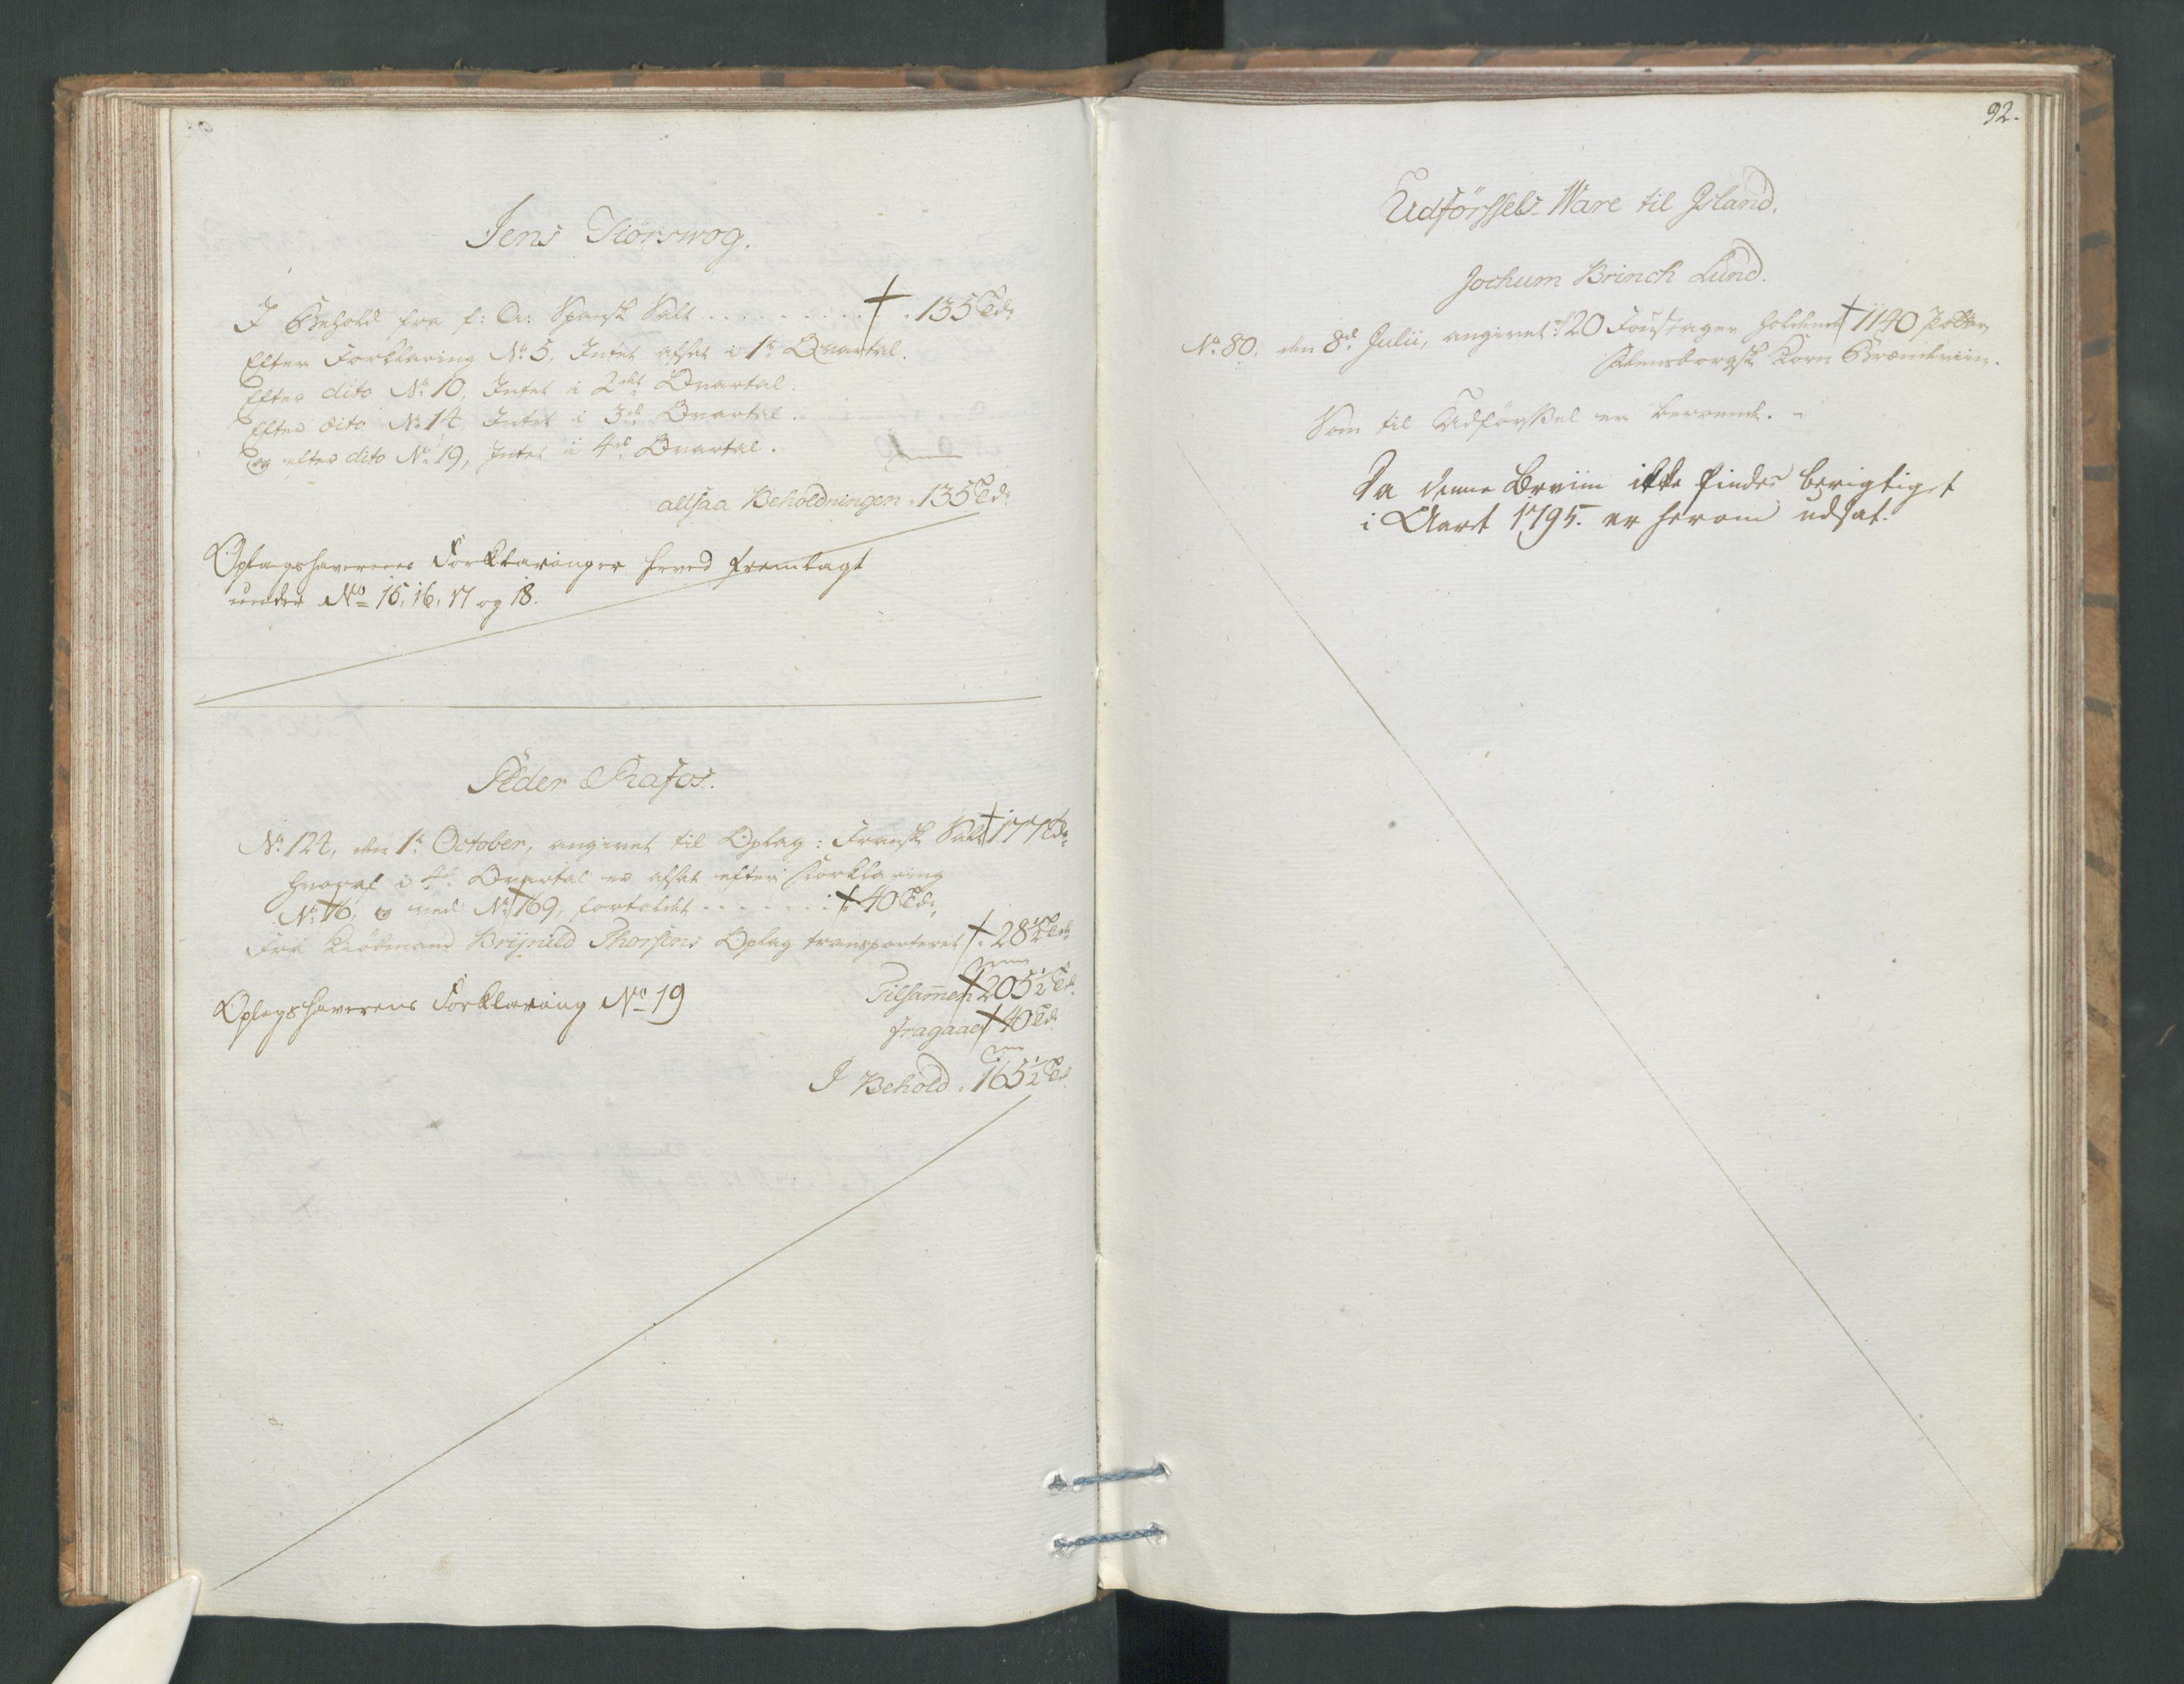 Jens Tiörswog.
I Behold fra f: A: Spansk Salt . . . . . . . . . 135 Tdr
Efter Forklaring No. 5, Intet afsat i 1te Qvartal.
Efter dito No. 10, Intet i 2det Qvartal.
Efter dito No. 14, Intet i 3de Qvartal.
og efter dito No. 19, Intet i 4de Qvartal.
altsaa Beholdningen . 135 Tdr
Oplagshaverenes Forklaringer herved fremlagt
under No 15, 16, 17 og 18.
Peder
No. 124, den 1te October, angivet til Oplag: Fransk Salt 177 Tdr
hvoraf i 4de Qvartal er afsat efter Forklaring
No. 16, og med No. 169, fortoldet . . . . . . . 40 Tdr,
Fra Kiöbmand Brijnild Thorsens Oplag transporteret . 28 1/2 Tdr
Tilsammen 205 1/2 Td.
fragaaer 40 Td
Oplagshaverens Forklaring No 19
I Behold . 165 1/2 Td
92.
Udförssels-Ware til Island.
Jochum Brinch Lund.
No. 80, den 8de Julii, angivet: 20 Foustager holdende 1140 Potter
Flensborgsk Korn Brændeviin.
Som til Udförssel er beroende. -
Da denne Brviin ikke findes berigtiget
i Aaret 1795. er herom udsat.